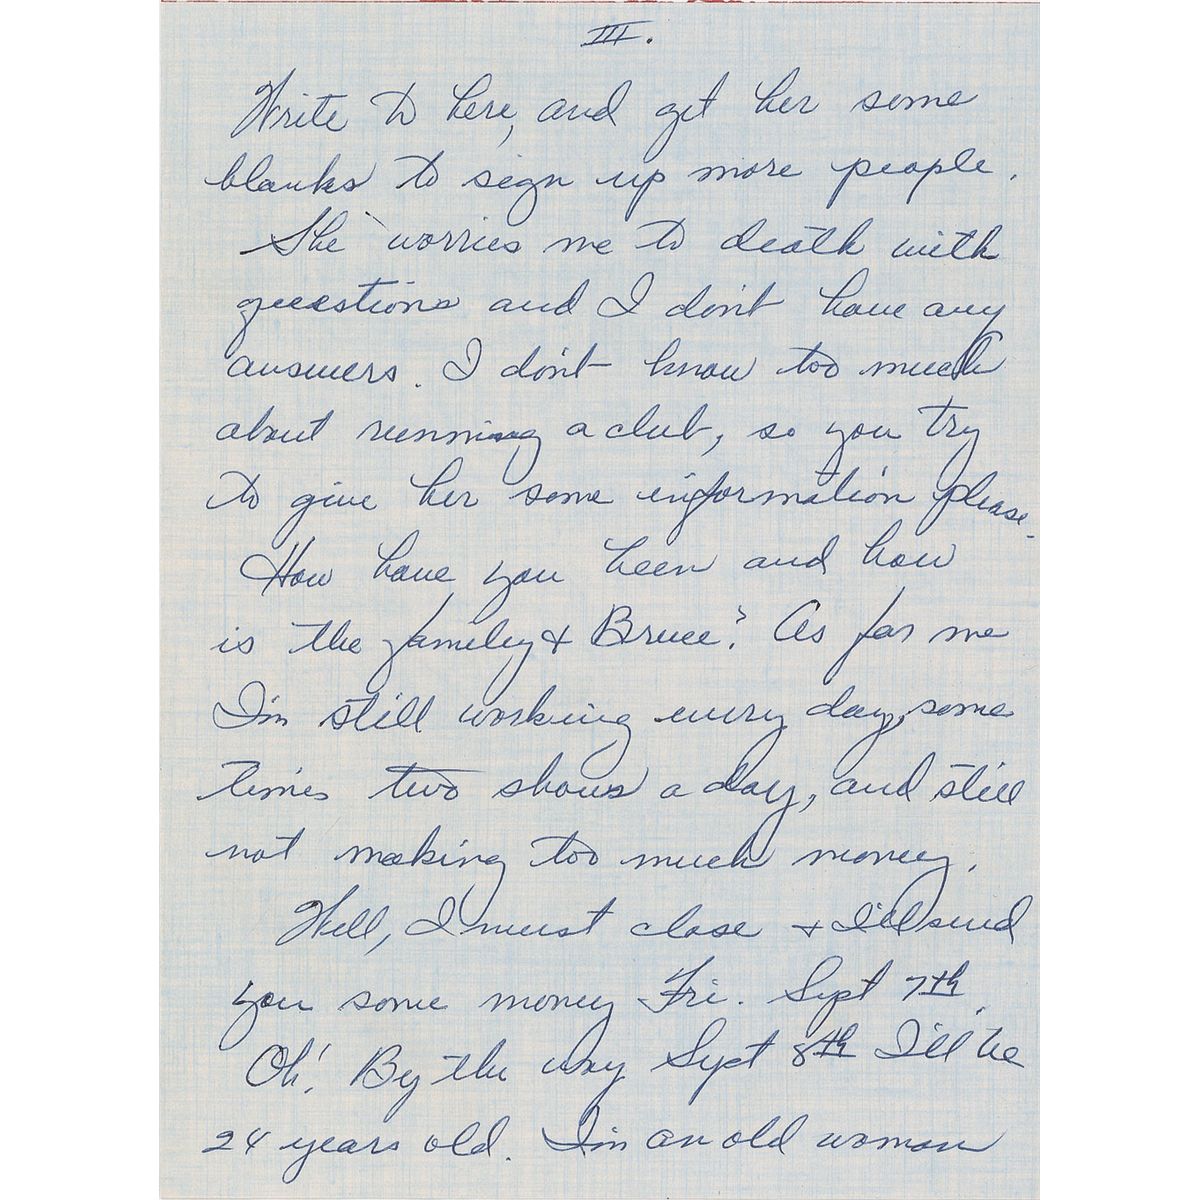 III.
Write to here, and get her some
blanks to sign up more people.
She worries me to death with
questions and I don't have any
answers. I don't know too much
about running a club, so you try
to give her some information please.
How have you been and how
is the family & Bruce? As for me
I'm still working every day, some
times two shows a day, and still
not making too much money.
Well, I must close & I'll send
you some money Fri. Sept 7th.
Oh! By the way Sept 8th I'll be
24 years old. I'm an old woman